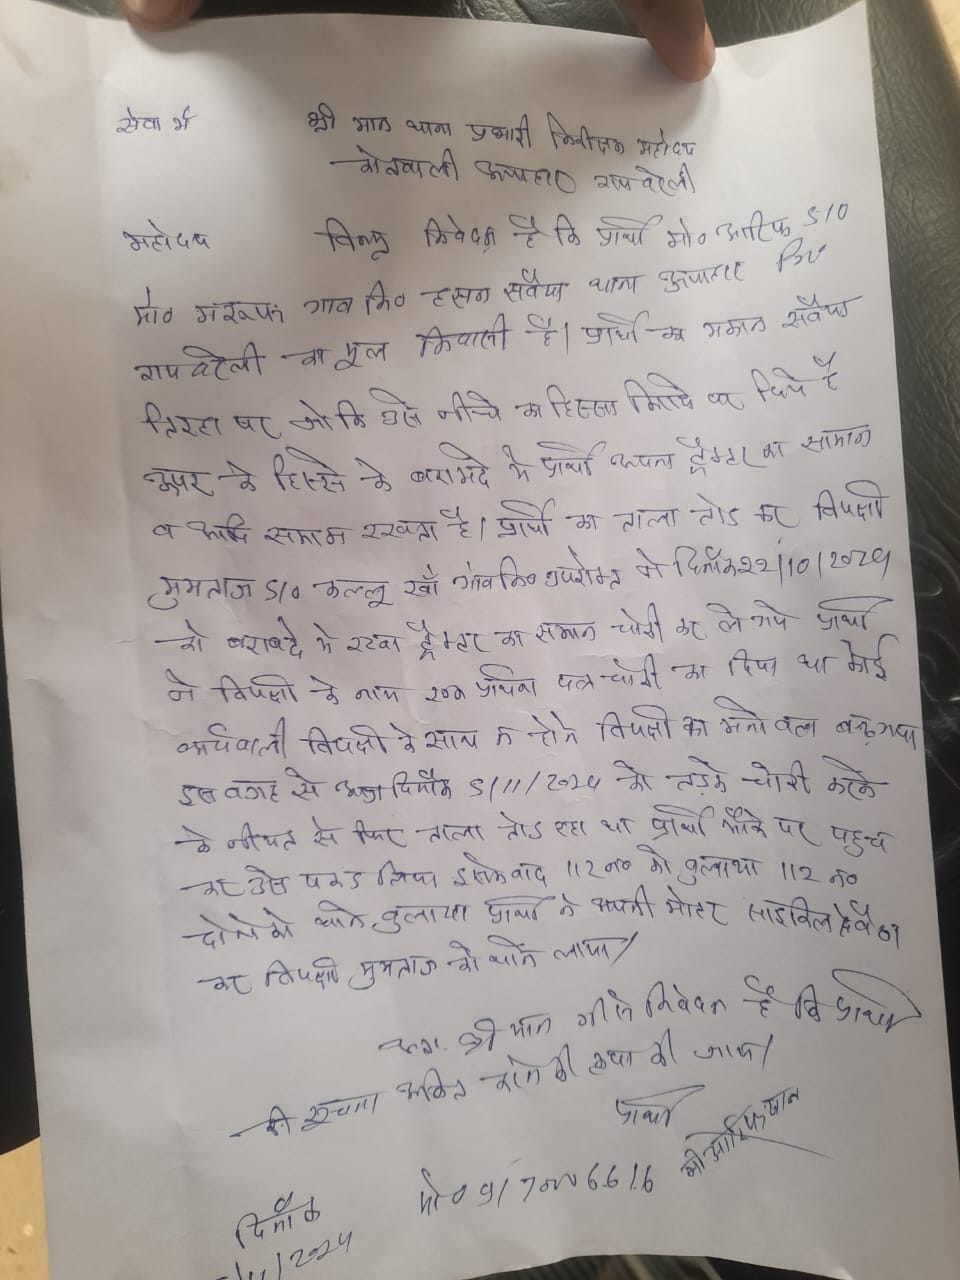 सेवा में
श्री मान थाना प्रभारी निरीक्षक महोदय
कोतवाली ऊंचाहार रायबरेली
महोदय विनम्र निवेदन है कि प्रार्थी मो० आरिफ S/O
मो० गांव नि० हसन सवैया थाना ऊंचाहार
रायबरेली का मूल निवासी है। प्रार्थी का मकान सवैया
तिराहा पर जो कि उसे नीचे का हिस्सा किराये पर दिये है
ऊपर के हिस्से के बरामदे में प्रार्थी अपना ट्रैक्टर का सामान
व आदि समान रखता है। प्रार्थी का ताला तोड कर विपक्षी
मुमताज S/O कल्लू खाँ गांव नि० उपरोक्त ने दिनाँक 22/10/2024
को बरामदे मे रखा ट्रैक्टर का समान चोरी कर ले गये प्रार्थी
ने विपक्षी के नाम प्रार्थना पत्र चोरी का दिया था कोई
कार्यवाली विपक्षी के साथ न होने विपक्षी का मनो वल बढ़ गया
इस वजह से आज दिनाँक 5/11/2024 को तड़के चोरी करने
के नीयत से फिर ताला तोड रहा था प्रार्थी मौके पर पहुच
कर उसे पकड लिया इसके बाद 112 न० को बुलाया 112 न०
दोनो को थाने बुलाया प्रार्थी ने अपनी मोटर साइकिल से बैठा
कर विपक्षी मुमताज को थाने लाया।
अतः श्री मान जी से निवेदन है कि प्रार्थी
की सूचना अंकित करने की कृपा की जाय।
प्रार्थी
मो आरिफ खान
दिनाँक
/11/2024